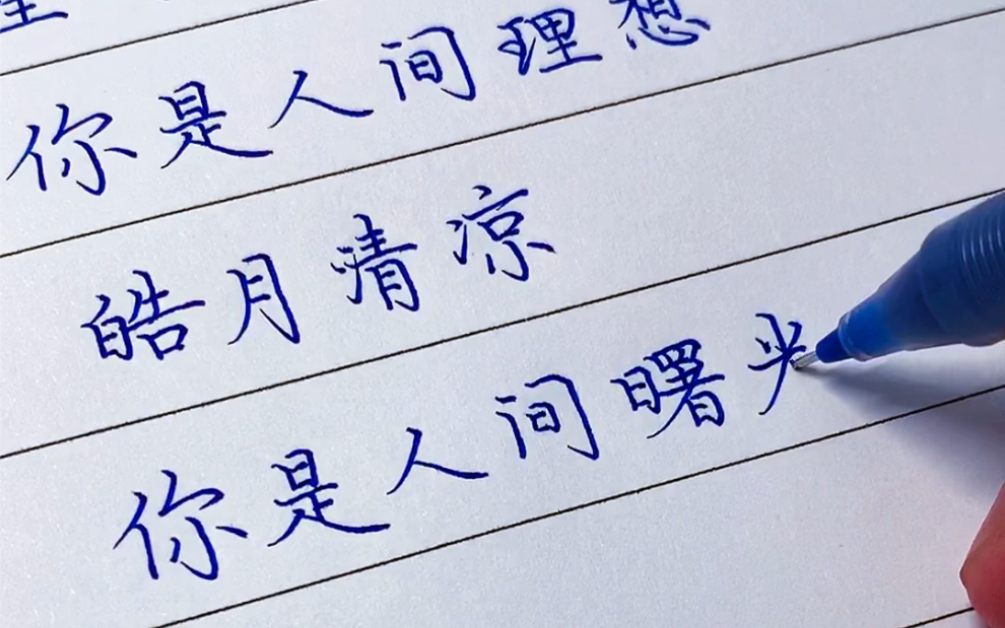 你是人间理想
皓月清凉
你是人间曙光